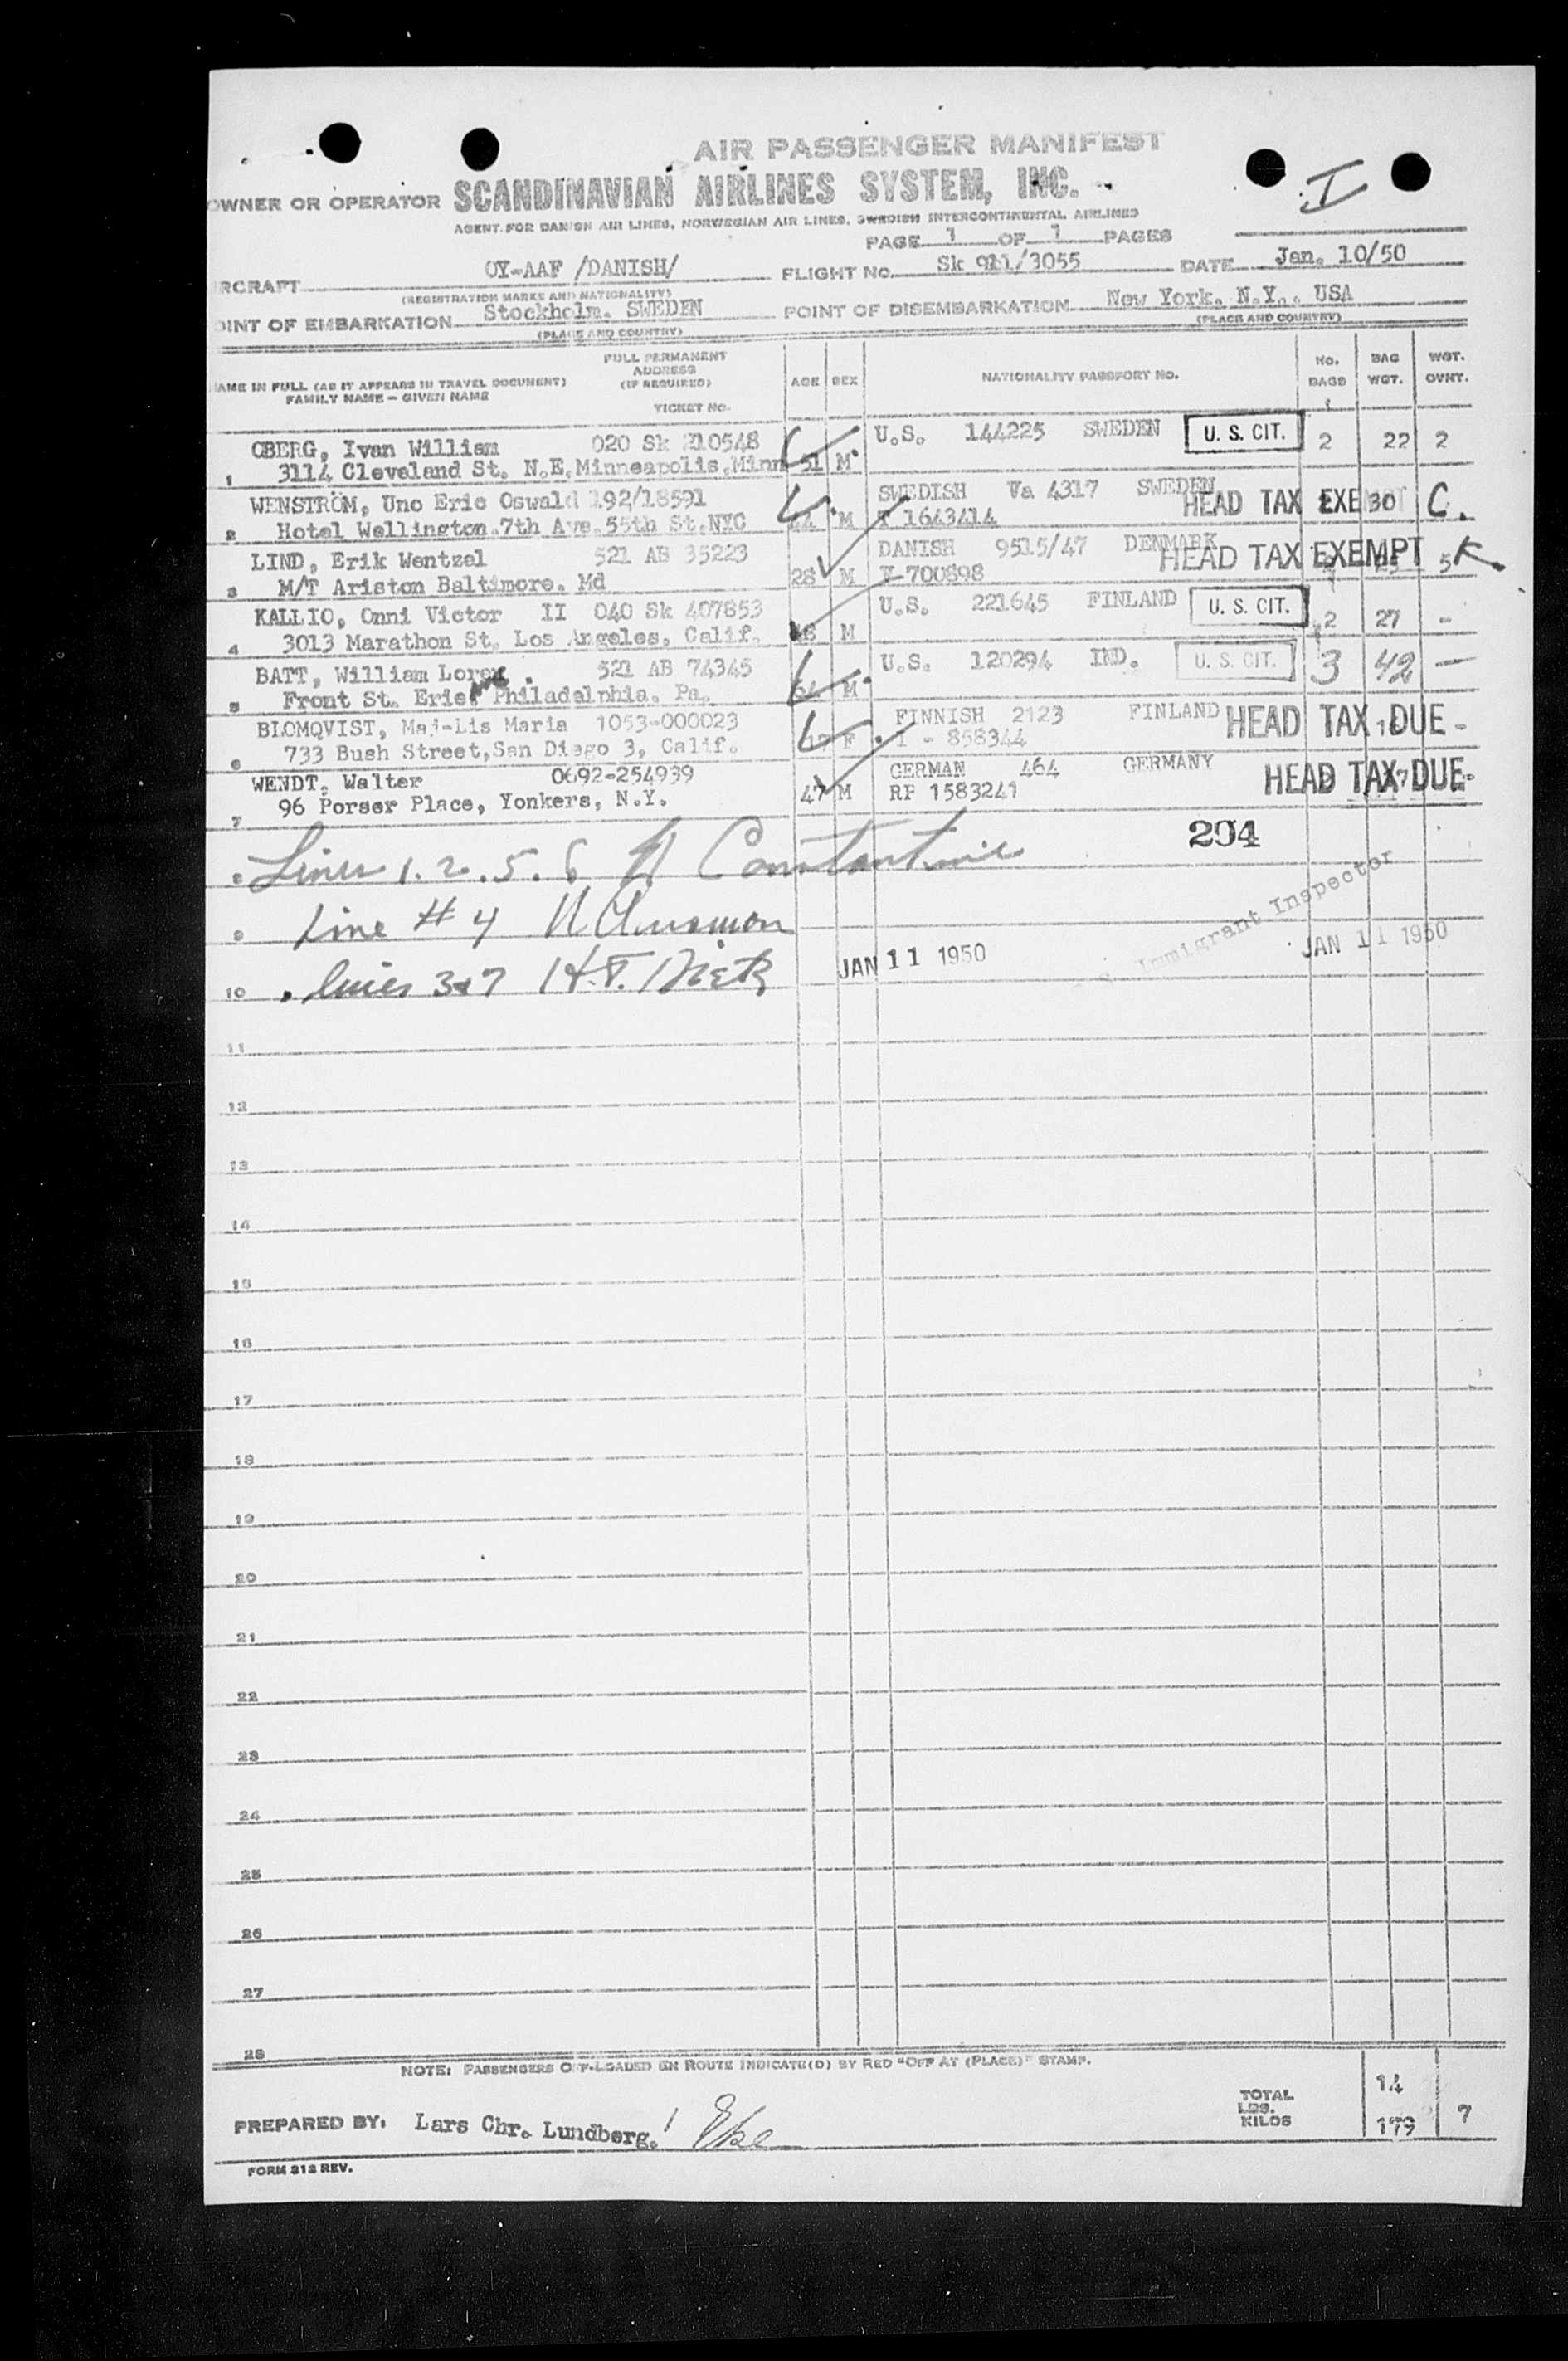 I
AIR PASSENGER MANIFEST
OWNER OR OPERATOR SCANDINAVIAN AIRLINES SYSTEM, INC.
AGENT FOR DANISH AIR LINES, NORWEGIAN AIR LINES, SWEDISH INTERCONTINENTAL AIRLINES
PAGE 1 OF 1 PAGES
RCRAFT OY-AAF /DANISH/ FLIGHT No. Sk 911/3055 DATE Jan. 10/50
(REGISTRATION MARKS AND NATIONALITY)
OINT OF EMBARKATION Stockholm. SWEDEN POINT OF DISEMBARKATION New York. N.Y.. USA
(PLACE AND COUNTRY) (PLACE AND COUNTRY)
FULL PERMANENT ADDRESS (IF REQUIRED)
AME IN FULL (AS IT APPEARS IN TRAVEL DOCUMENT) AGE SEX NATIONALITY PASSPORT NO. No. BAGS BAG WGT. WGT. OVHT.
FAMILY NAME – GIVEN NAME
TICKET No.
OBERG, Ivan William 020 Sk 210548 U.S. 144225 SWEDEN U. S. CIT. 2 22 2
1 3114 Cleveland St. N.E. Minneapolis, Minn 51 M
WENSTRÖM, Uno Eric Oswald 192/18591 SWEDISH Va 4317 SWEDEN HEAD TAX EXE 30 C.
2 Hotel Wellington.7th Ave.55th St.NYC 44 M T 1643414
LIND, Erik Wentzel 521 AB 35223 DANISH 9515/47 DENMARK HEAD TAX EXEMPT 5 K.
3 M/T Ariston Baltimore. Md 28 M V-700698
KALLIO, Onni Victor II 040 Sk 407853 U.S. 221645 FINLAND U. S. CIT. 2 27 -
4 3013 Marathon St. Los Angeles, Calif. M
BATT, William Loren. 521 AB 74345 U.S. 120294 IND. U. S. CIT. 3 42 —
5 Front St. Erie Ave Philadelphia. Pa. 64 M
BLOMQVIST, Maj-Lis Maria 1053-000023 FINNISH 2123 FINLAND HEAD TAX DUE -
6 733 Bush Street, San Diego 3, Calif. F I - 858344
WENDT, Walter 0692-254939 GERMAN 464 GERMANY HEAD TAX DUE
7 96 Porser Place, Yonkers, N.Y. 47 M RP 1583241
204
8 Lines 1. 2. 5. 6 Constantine
9 Line # 4
Immigrant Inspector
10 lines 3&7 H.T. Dietz JAN 11 1950 JAN 11 1950
11
12
13
14
15
16
17
18
19
20
21
22
23
24
25
26
27
28
NOTE: PASSENGERS OFF-LOADED EN ROUTE INDICATE(D) BY RED "OFF AT (PLACE)" STAMP.
TOTAL 14
LBS.
KILOS 179 7
PREPARED BY: Lars Chr. Lundberg.
FORM 313 REV.